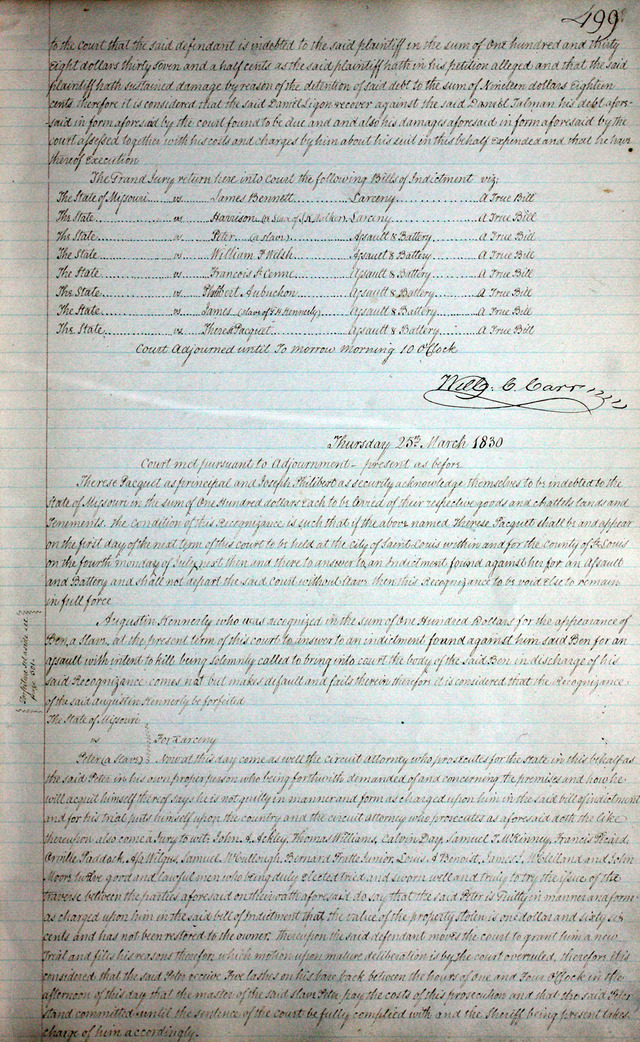 499
to the court that the said defendant is indebted to the said plaintiff in the sum of One hundred and thirty
Eight dollars thirty seven and a half cents as the said plaintiff hath in his petition alleged and that the said
plaintiff hath sustained damage by reason of the detention of said debt to the sum of Nineteen dollars Eighteen
cents therefore it is considered that the said David Ligon recover against the said Daniel Talman his debt afore-
said in form aforesaid by the court found to be due and and also his damages aforesaid in form aforesaid by the
court assessed together with his costs and charges by him about his suit in this behalf Expended and that he have
thereof Execution
The Grand Jury return here into Court the following Bills of Indictment viz;
The State of Missouri vs James Bennett Larceny A True Bill
The State vs Harrison (a slave of Larceny A True Bill
The State vs Peter (a slave) Assault & Battery A True Bill
The State vs William F Welsh Assault & Battery A True Bill
The State vs Francois St Cenne Assault & Battery A True Bill
The State vs Aubuchon Assault & Battery A True Bill
The State vs James (slave of Kennerly) Assault & Battery A True Bill
The State vs Therese Pacquet Assault & Battery A True Bill
Court Adjourned until To morrow morning 10 O'Clock
Will. C. Carr
Thursday 25th March 1830
Court met pursuant to Adjournment - present as before
Therese Pacquet as principal and Joseph Philibert as security acknowledge themselves to be indebted to the
State of Missouri in the sum of One Hundred dollars Each to be levied of their respective goods and chattels lands and
Tenements. the condition of this Recognizance is such that if the above named Therese Pacquet shall be and appear
on the first day of the next term of this court to be held at the city of Saint Louis within and for the County of St Louis
on the fourth monday of July next then and there to answer to an Indictment found against her for an Assault
and Battery and shall not depart the said Court without leave then this Recognizance to be void Else to remain
in full force
Augustin Kennerly who was recognized in the sum of One Hundred Dollars for the appearance of
Ben, a Slave, at the present term of this court to answer to an indictment found against him said Ben for an
assault with intent to kill being solemnly called to bring into court the body of the said Ben in discharge of his
said Recognizance comes not but makes default and fails therein therefore it is considered that the Recognizance
of the said Augustin Kennerly be forfeited
The State of Missouri
vs For Larceny
Peter (a slave) Now at this day come as well the circuit attorney who prosecutes for the State in this behalf as
the said Peter in his own proper person who being forthwith demanded of and concerning the premises and how he
will acquit himself thereof says he is not guilty in manner and form as charged upon him in the said bill of indictment
and for his trial puts himself upon the country and the circuit attorney who prosecutes as aforesaid doth the like
thereupon also come a Jury to wit; John A. Ackley, Thomas Williams, Calvin Day, Samuel T. McKinney, Francis Picard
Orville Paddock, Asa Wilgus, Samuel Bernard Pratte Junior, Louis A Benoist, James and John
Moore twelve good and lawful men who being duly Elected tried and sworn well and truly to try the issue of the
traverse between the parties aforesaid on their oath aforesaid do say that the said Peter is Guilty in manner and form
as charged upon him in the said bill of Indictment that the value of the property stolen is one dollar and sixty six
cents and has not been restored to the owner. Thereupon the said defendant moves the court to grant him a new
Trial and files his reasons therefor, which motion upon mature deliberation is by the court overuled, therefore it is
considered that the said Peter receive Five lashes on his bare back between the hours of One and Four O'Clock in the
afternoon of this day that the master of the said slave Peter pay the costs of this prosecution and that the said Peter
stand committed until the sentence of the court be fully complied with and the Sheriff being present takes
charge of him accordingly.